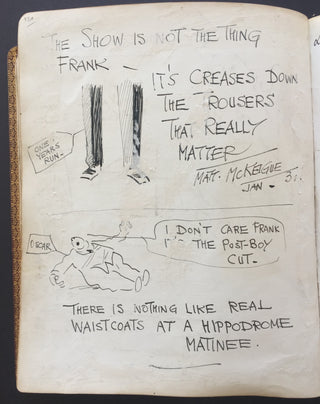 THE SHOW IS NOT THE THING
FRANK —
IT'S CREASES DOWN
THE TROUSERS
THAT REALLY
MATTER
ONE
YEARS
RUN.
MATT. McKEIGUE
JAN. 31.
OSCAR
I DON'T CARE FRANK
IT'S THE POST-BOY
CUT.
THERE IS NOTHING LIKE REAL
WAISTCOATS AT A HIPPODROME
MATINEE.